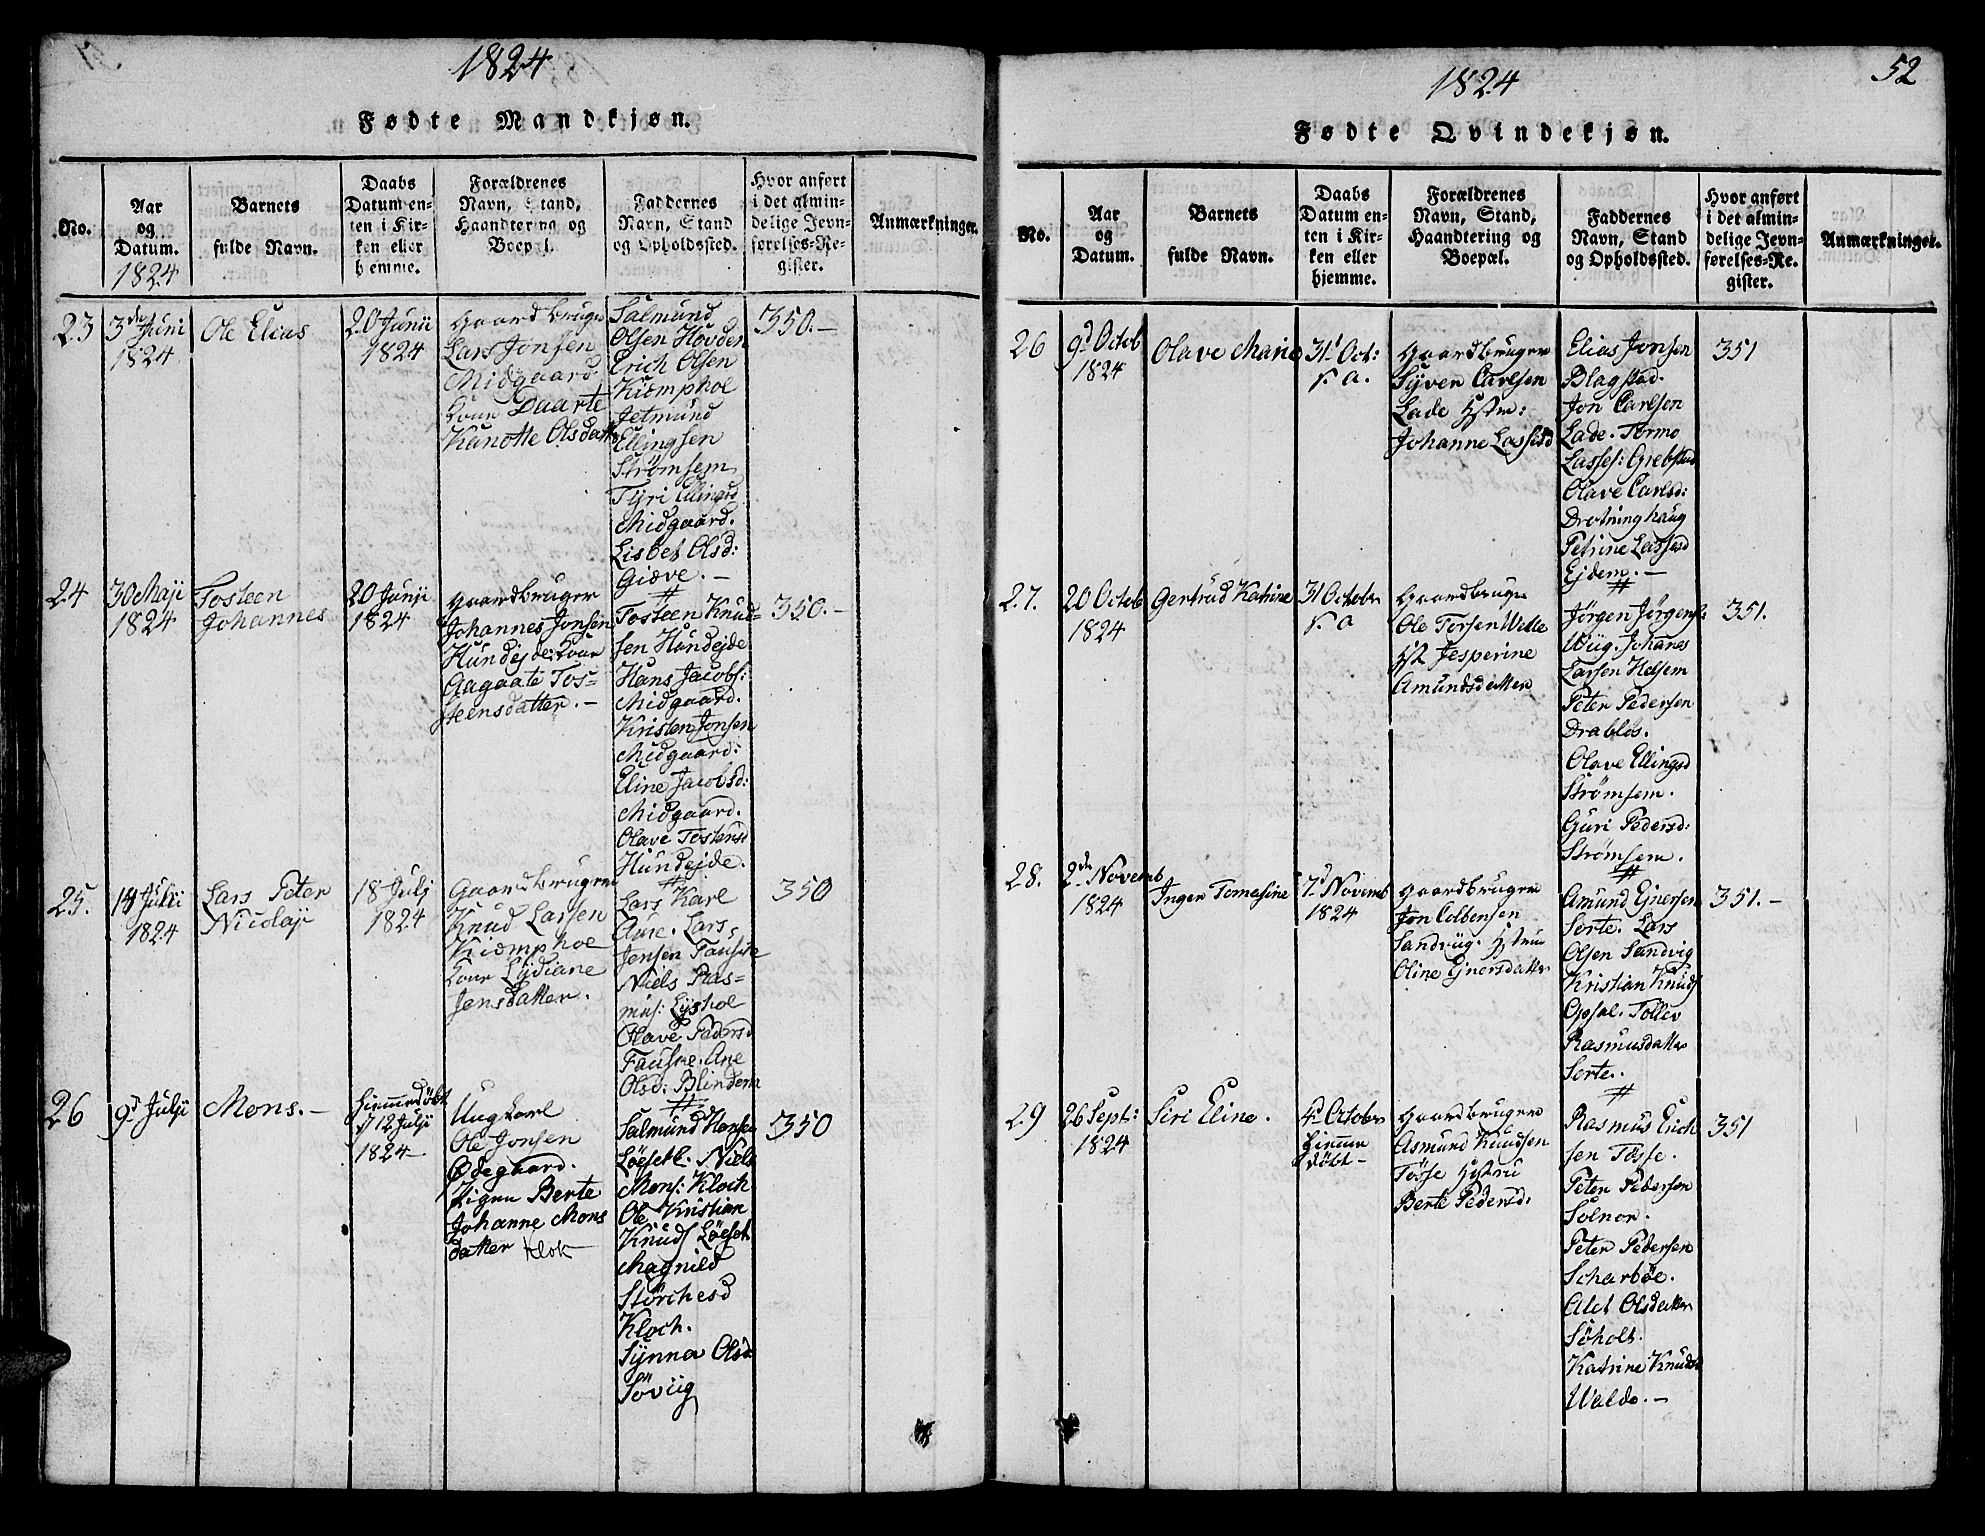 1824
Fødte Mandkjøn.
No.
Aar
og
Datum.
1824
Barnets
fulde Navn.
Daabs
Datum en-
ten i Kir-
ken eller
hjemme.
Forældrenes
Navn, Stand,
Haandtering og
Boepæl.
Faddernes
Navn, Stand
og Opholdssted.
Hvor anført
i det almin-
delige Jevn-
førelses-Re-
gister.
Anmærkninger.
23
3de Juni
1824
Ole Elias
20 Junii
1824
Gaardbruger
Lars Jonsen
Midgaard
Kone Daarte
Kanotte Olsdatt
Salmund
Olsen Hovden
Erich Olsen
Kiomphol
Jetmund
Ellingsen
Strømsem
Tyri Ellingsd
Midgaard.
Lisbet Olsd:
Giøve. –
350.–
24
30 Maji
1824
Tosteen
Johannes
20 Junji
1824
Gaardbruger
Johannes Jonsen
Hundejde: Kone
Aagaate Tos=
steensdatter. –
Tosteen Knud=
sen Hundejde
Hans Jacobs:
Midgaard.
Kristen Jonsen
Midgaard:
Eline Jacobsd:
Midgaard.
Olave Tostensd
Hundejde.
350.–
25.
14 Julii
1824
Lars Peter
Nicolaji
18 Julj
1824
Gaardbruger
Knud Larsen
Kiomphol
Kone Lydiane
Jensdatter.
Lars Karl
Aure. Lars
Jensen Fauske
Niels Ras=
mus: Lyshol
Olave Pedersd
Fauske. Ane
Olsd: Blindem
350
26
9d Julji
Mons. –
Hiemmedöbt
d 12 Julji
1824 –
Ungkarl
Ole Jonsen
Ødegaard.
Pigen Berte
Johanne Mons
datter Klok
Salmund Hansen
Löesetl. Niels
Mons: Kloch
Ole Kristian
Knuds Löeset
Magnild
Störchesd
Kloch.
Synna Olsd
Söviig
350
1824
52
Fødte Qvindekjøn.
No.
Aar
og
Datum.
Barnets
fulde Navn.
Daabs
Datum en-
ten i Kir-
ken eller
hjemme.
Forældrenes
Navn, Stand,
Haandtering og
Boepæl.
Faddernes
Navn, Stand
og Opholdssted.
Hvor anført
i det almin-
delige Jevn-
førelses-Re-
gister.
Anmærkninger.
26
9d Octob
1824
Olave Marie
31d Oct:
s. a.
Gaardbruger
Syver Carlsen
Lade Hstru:
Johanne Lassesd
Elias Jonsen
Blagstad.
Jon Carlsen
Lade. Tormo
Lasses: Grebstad
Olave Carlsd:
Drotninghaug
Petrine Lassesd
Ejdem. –
351
27.
20 Octob
1824
Gertrud Katrine
31 Octobr
s. a
Gaardbruger
Ole Torsen Welle
Hst Jesperine
Amundsdatter
Jörgen Jörgens:
Wiig. Johanes
Larsen Helsem
Peter Pedersen
Drablös.
Olave Ellingsd
Strömsem.
Guri Pedersd:
Strömsem.
351.
28.
2de Novemb
1824
Inger Tomasine
7d Novemb
1824
Gaardbruger
Jon Colbensen
Sandvüg. Hstru
Oline Ejnersdatter
Amund Ejnersen
Sorte. Lars
Olsen Sandvig
Kristian Knuds
Opsal. Tollev
Rasmusdatter
Sorte.
351. –
29
26 Sept:
1824
Siri Eline.
4d October
hiemme
döbt –
Gaardbruger
Asmund Knudsen
Tösse Hstru
Berte Pedersd:
Rasmus Erich
sen Tösse.
Peter Pedersen
Solnor.
Peter Pedersen
Scharböe.
Alet Olsdatter
Söholt.
Katrine Knudsd
Walde. –
351